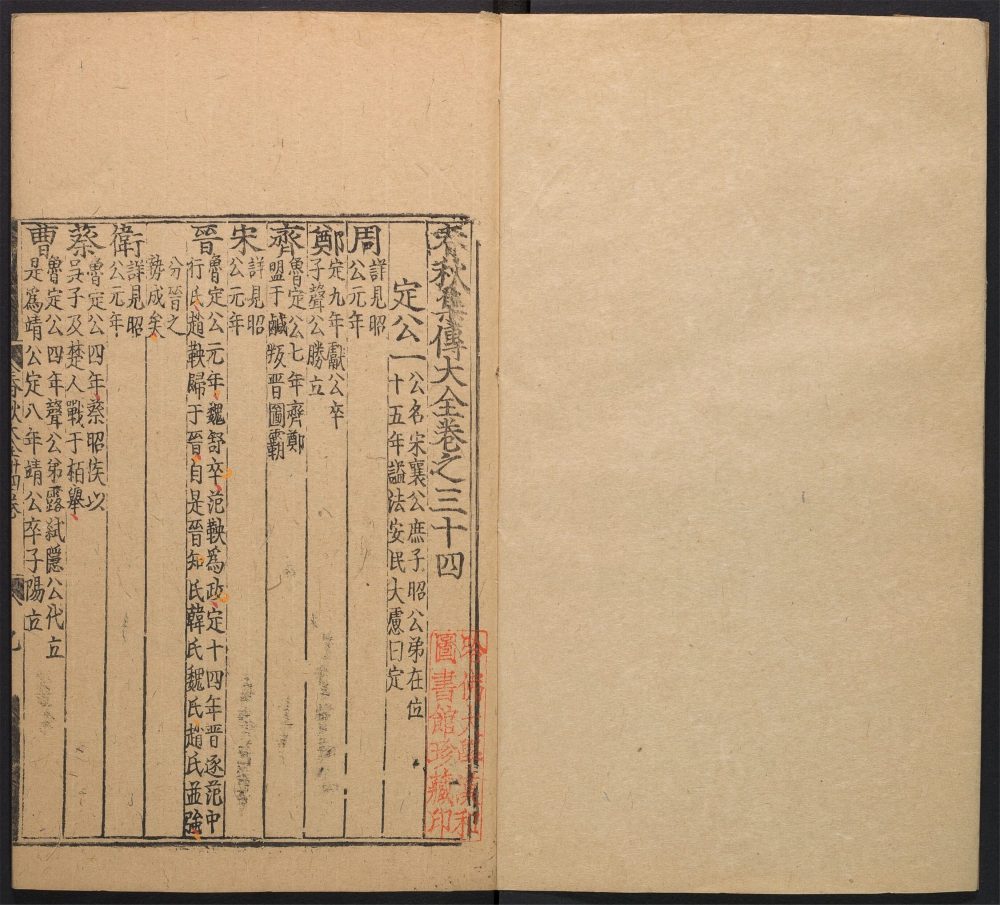 春秋集傳大全卷之三十四
定公一
公名宋襄公庶子昭公弟在位
十五年謚法安民大慮曰定
周
詳見昭
公元年
鄭
定九年獻公卒
子聲公勝立
齊
魯定公七年齊鄭
盟于鹹叛晉圖霸
宋
詳見昭
公元年
晉
魯定公元年魏舒卒范鞅爲政定十四年晉逐范中
行氏趙鞅歸于晉自是晉知氏韓氏魏氏趙氏並強
分晉之
勢成矣
衛
詳見昭
公元年
蔡
魯定公四年蔡昭侯以
吳子及楚人戰于栢舉
曹
魯定公四年聲公弟露弑隱公代立
是爲靖公定八年靖公卒子陽立
春秋大全卅四卷
哈佛大學漢和
圖書館珍藏印